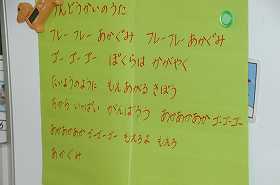 うんどうかいのうた
フレー フレー あかぐみ フレーフレー あかぐみ
ゴー ゴー ゴー ぼくらは かがやく
たいようのように もえあがる きぼう
ちから いっぱい がんばろう あかあかあか ゴーゴーゴー
あかあかあか ゴーゴーゴー もえろよ もえろ
あかぐみ